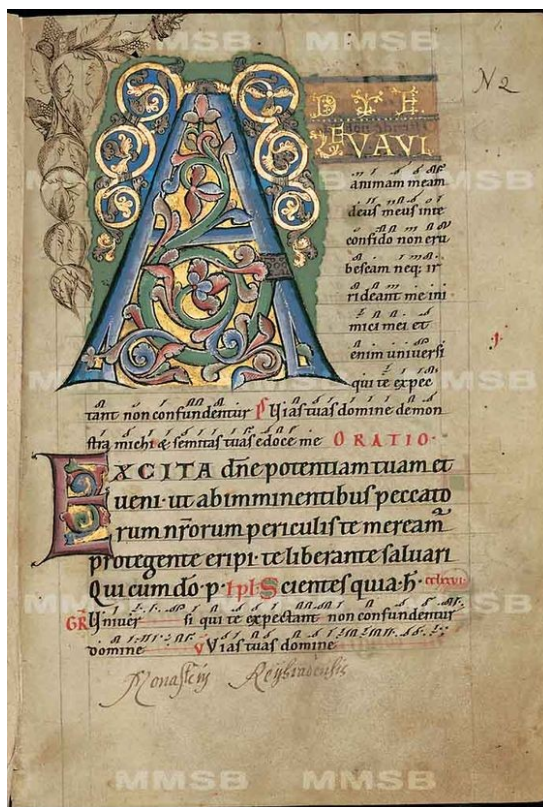 MMSB MMSB
N 2
A D TE
LEVAVI
animam meam
deus meus in te
confido non eru
bescam neq; ir
rideant me ini
mici mei et
enim universi
qui te expec
tant non confundentur P Vias tuas domine demon
stra michi & semitas tuas edoce me ORATIO·
EXCITA dñe potentiam tuam et
ueni· ut ab imminentibus peccato
rum nr̃orum periculis te meream̃
protegente eripi· te liberante saluari
Qui cum dõ· p· Scientes quia· h̃·
GR Vniuer si qui te expectant non confundentur
domine V Vias tuas domine
Monasterij
MMSB MMSB